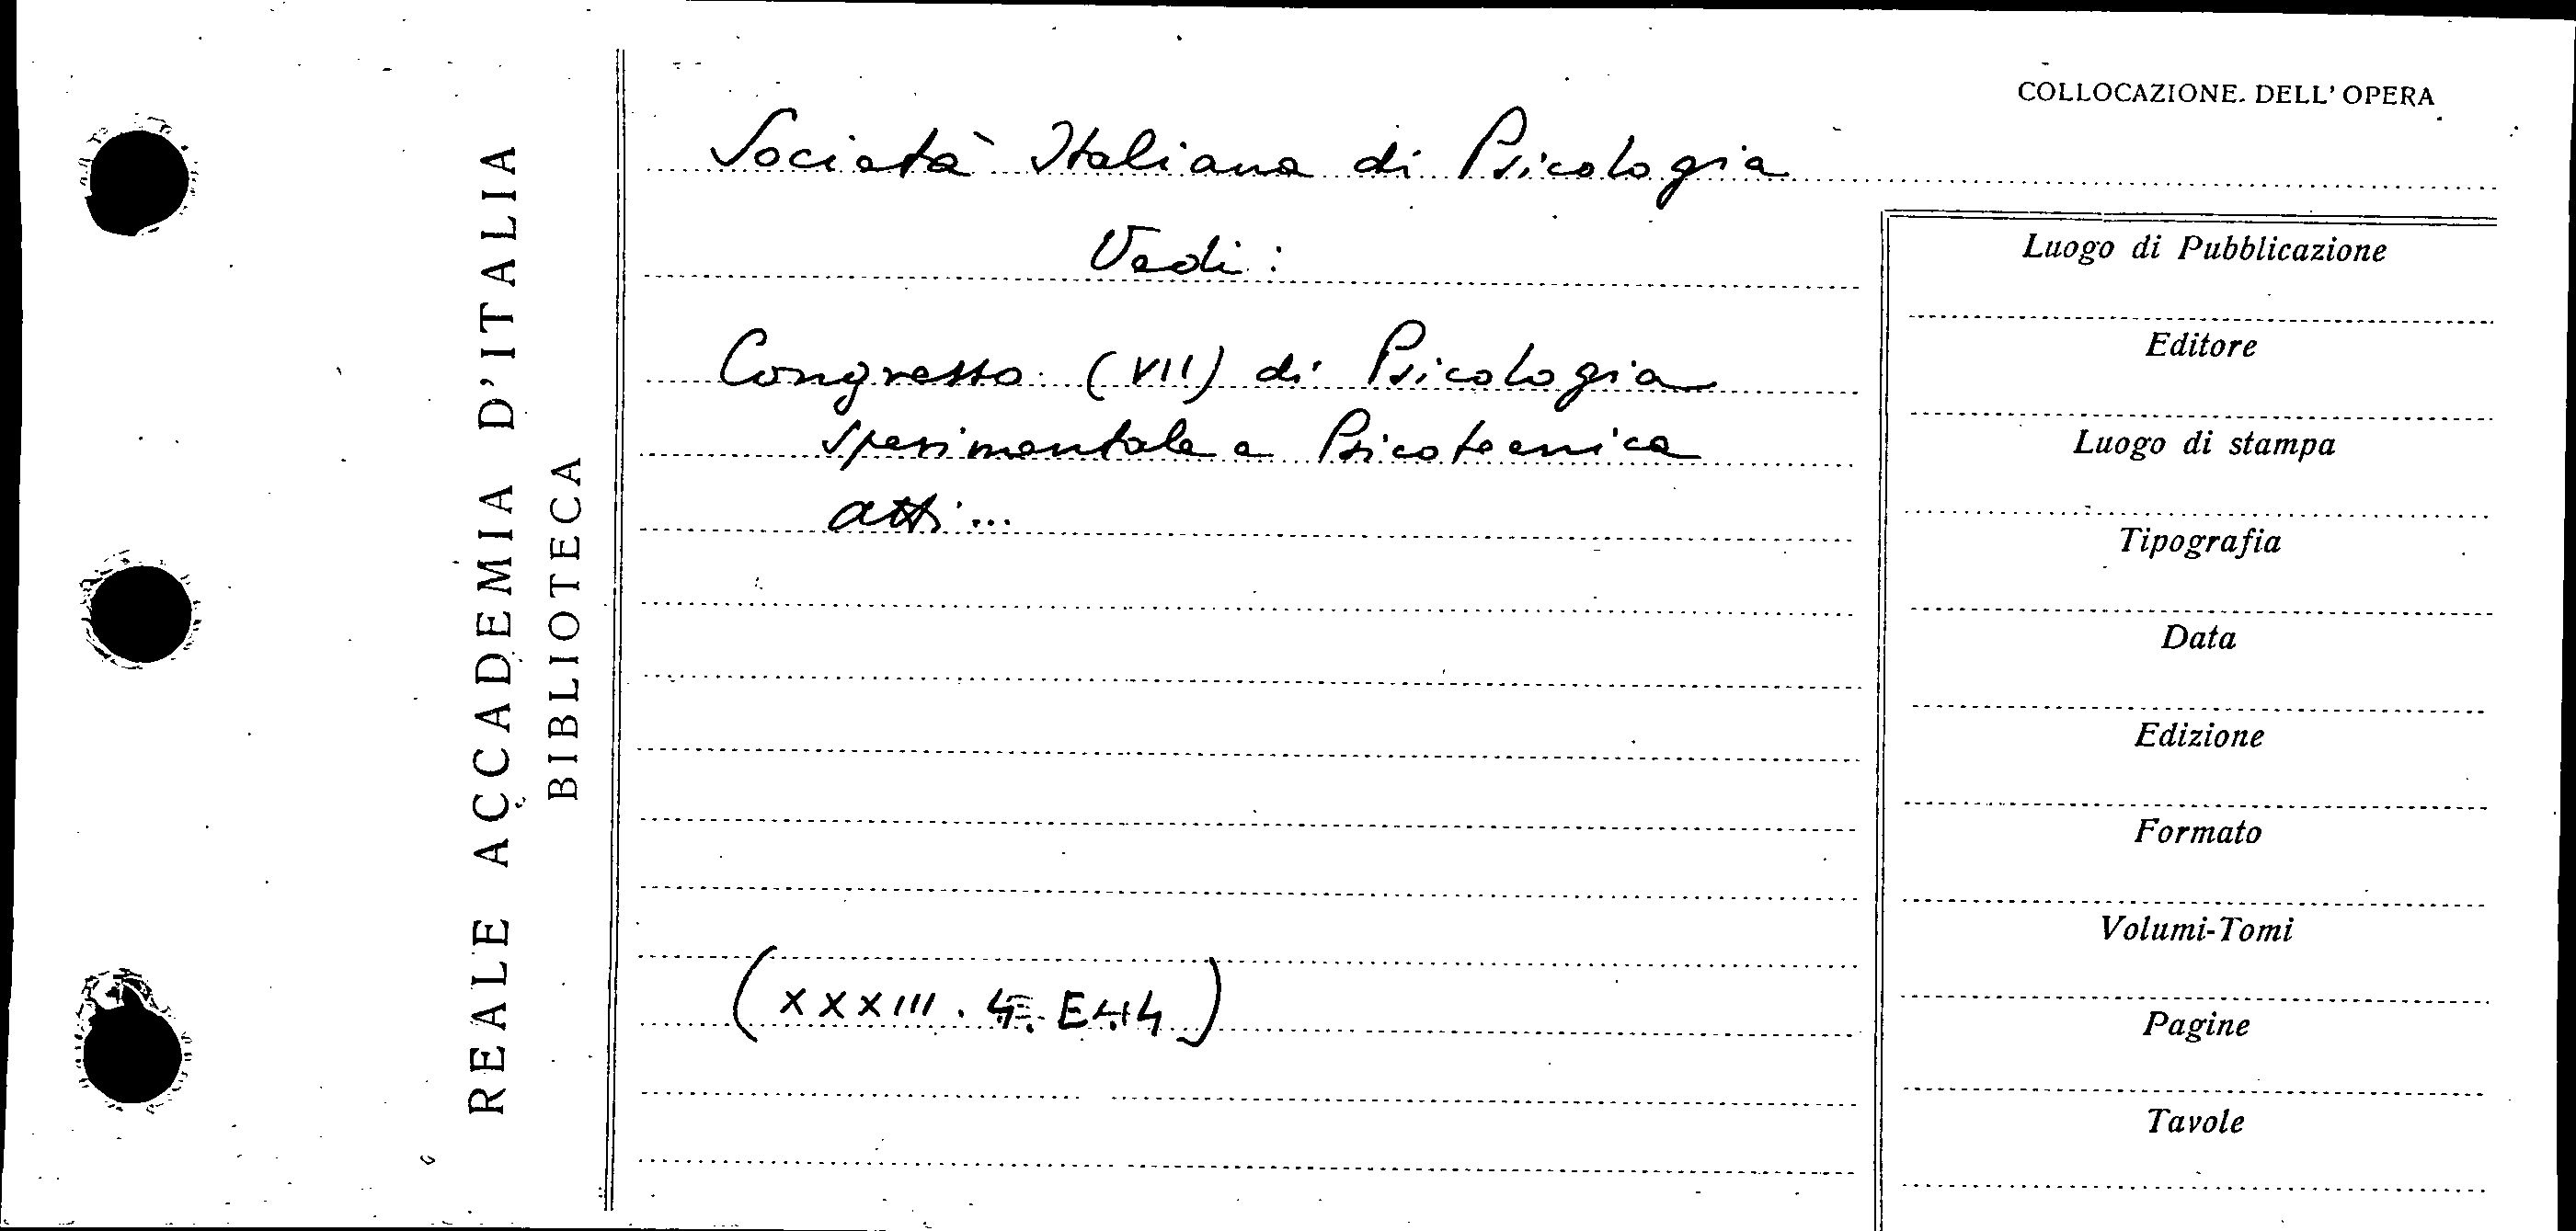 REALE ACCADEMIA D'ITALIA
BIBLIOTECA
COLLOCAZIONE DELL' OPERA
Società Italiana di Psicologia
Vedi:
Congresso (VII) di Psicologia
Sperimentale e Psicotecnica
Atti...
(XXXIII. 4. E44)
Luogo di Pubblicazione
Editore
Luogo di stampa
Tipografia
Data
Edizione
Formato
Volumi-Tomi
Pagine
Tavole